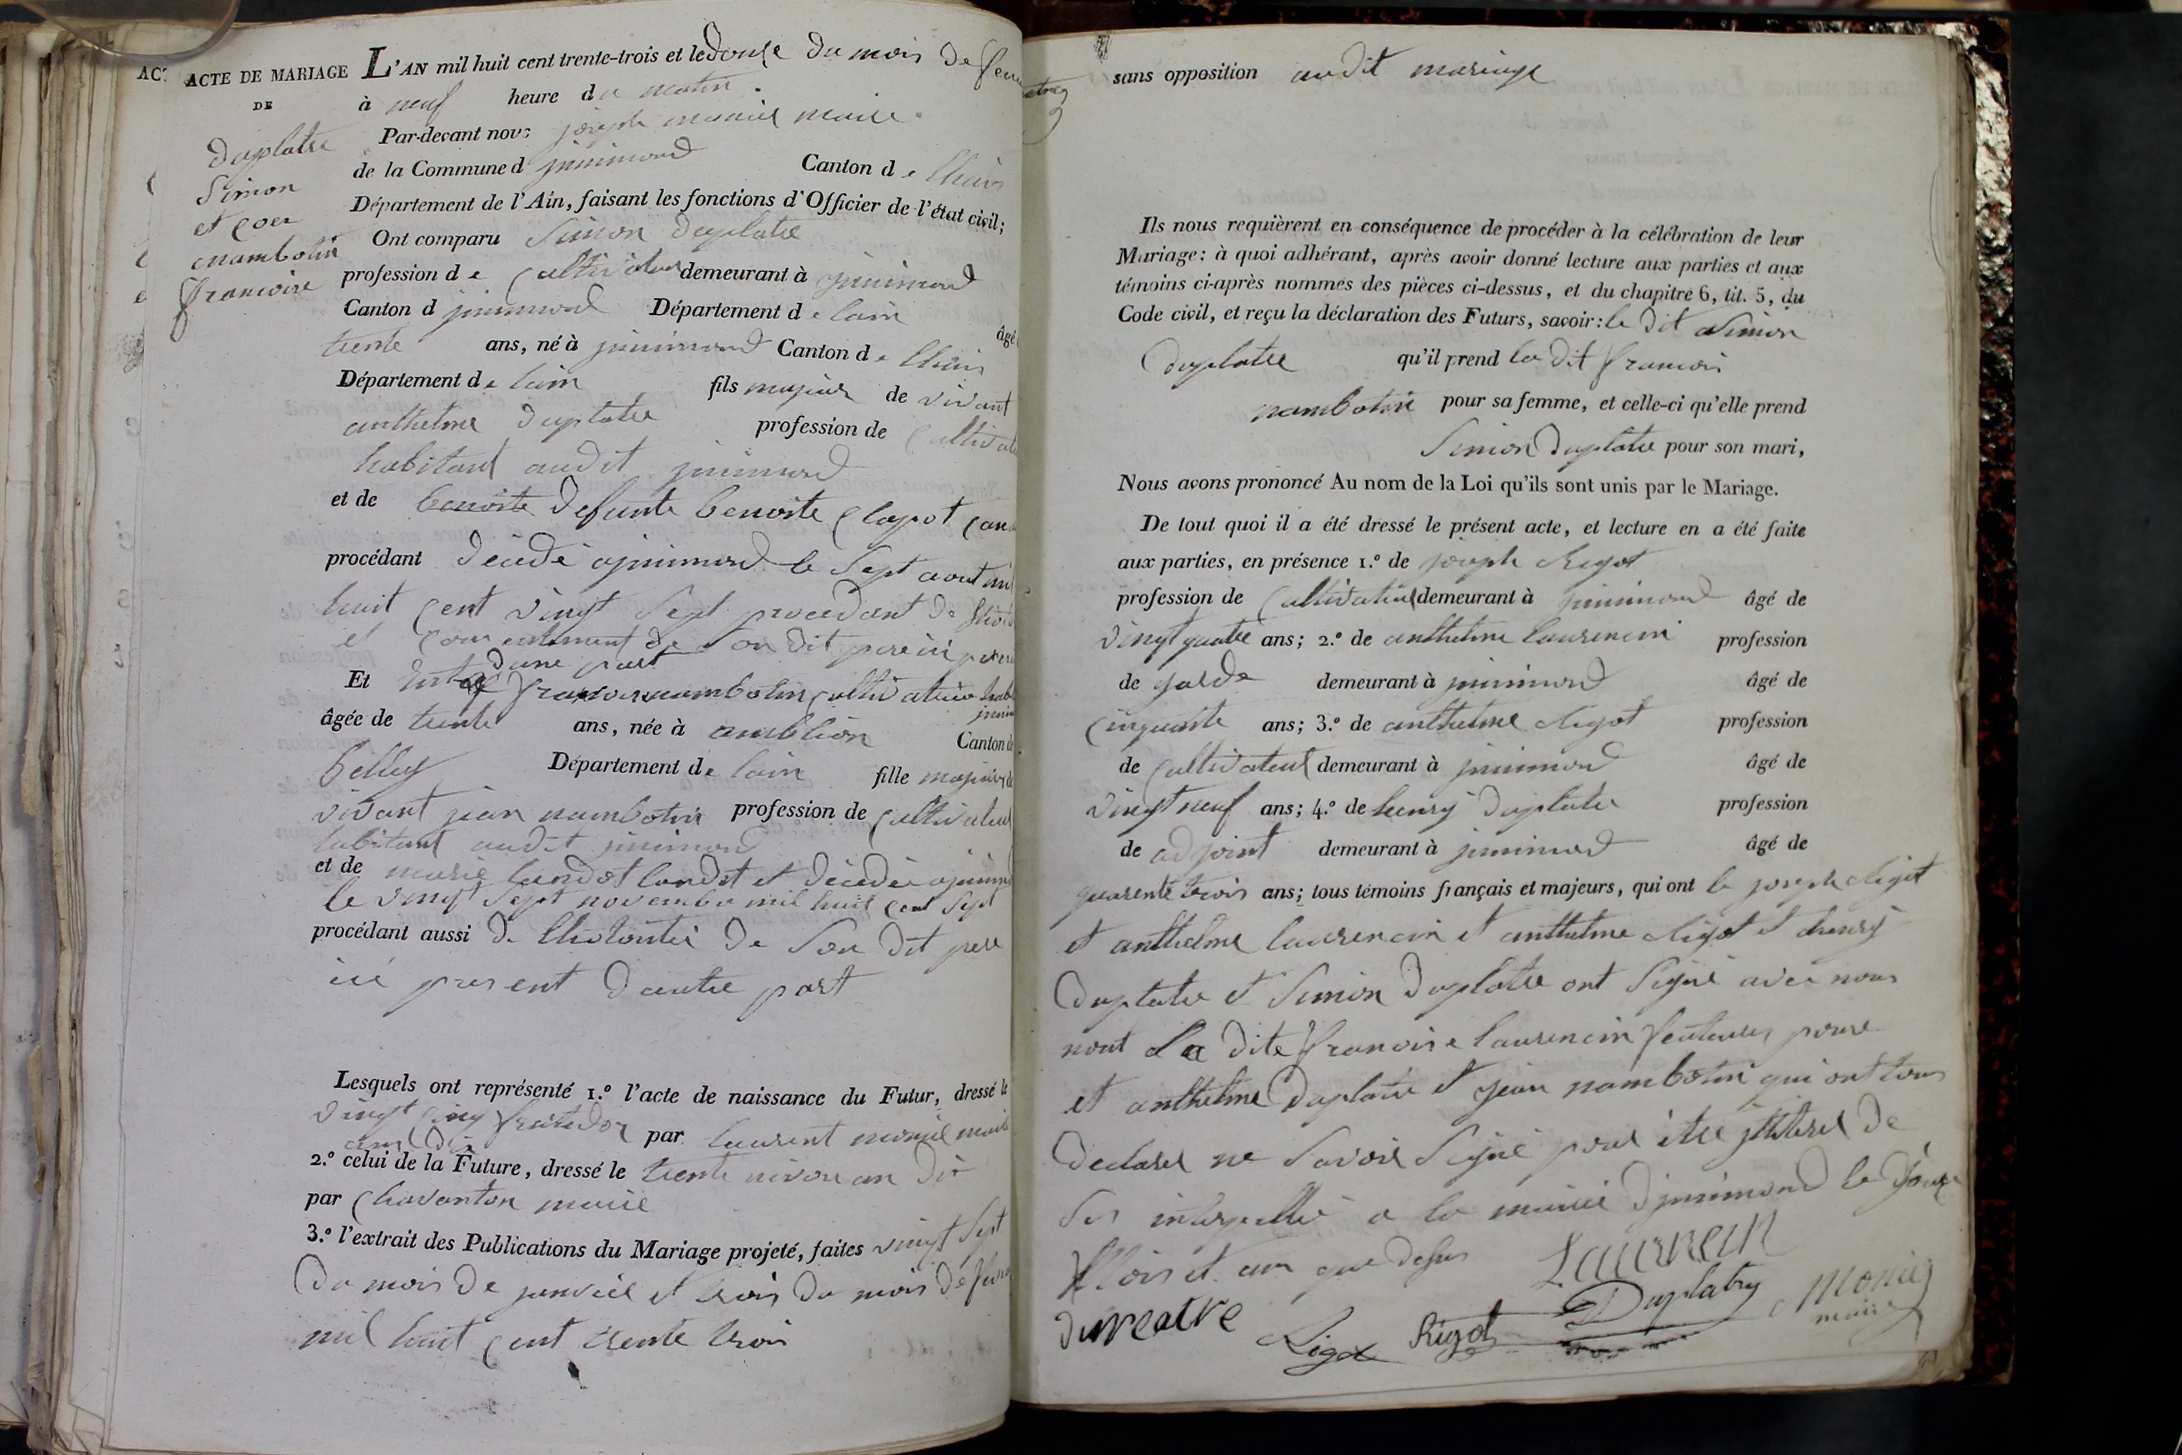 ACTE DE MARIAGE
DE
duplatre
Simon
et
nambotin
francoise
L'AN mil huit cent trente-trois et le douse du mois de
à neuf heure du matin.
Par-devant nous joseph monier maire.
de la Commune d jnnimond Canton de lhuis
Département de l'Ain, faisant les fonctions d'Officier de l'état civil;
Ont comparu Simon duplatre
profession de Cultivateur demeurant à jnnimond
Canton d jnnimond Département de lain âgé
trente ans, né à jnnimond Canton de lhuis
Département de lain fils majeur de vivant
anthelme duplatre profession de Cultivat
habitant audit jnnimond
et de benoite defunte benoite Clapot
procédant décédé ajnnimond le Sept aout mil
huit Cent vingt Sept procedant de
et Consentement de Son dit pere ici
dune part
Et nambotin Cultivatrice
âgée de trente ans, née à ambléon Canton de
belley Département de lain fille majeure de
vivant jean nambotin profession de Cultivateur
habitant audit jnnimond
et de marie landot landot et décédée ajnnimond
le vingt Sept novembre mil huit Cent Sept
procédant aussi de lhotorité de Son dit pere
ici present dautre part
Lesquels ont représenté 1.º l'acte de naissance du Futur, dressé le
vingt Cinq par laurent monier maire
2.º celui de la Future, dressé le trente nivose an dix
par Chavanton maire
3.º l'extrait des Publications du Mariage projeté, faites vingt Sept
du mois de janvier et trois du mois de
mil huit Cent trente trois
sans opposition audit mariage
Ils nous requièrent en conséquence de procéder à la célébration de leur
Mariage: à quoi adhérant, après avoir donné lecture aux parties et aux
témoins ci-après nommés des pièces ci-dessus, et du chapitre 6, tit. 5, du
Code civil, et reçu la déclaration des Futurs, savoir: le dit Simon
duplatre qu'il prend la dit francois
nambotin pour sa femme, et celle-ci qu'elle prend
Simon duplatre pour son mari,
Nous avons prononcé Au nom de la Loi qu'ils sont unis par le Mariage.
De tout quoi il a été dressé le présent acte, et lecture en a été faite
aux parties, en présence 1.º de joseph Rigot
profession de Cultivateur demeurant à jnnimond âgé de
vingt quatre ans; 2.º de anthelme laurencin profession
de garde demeurant à jnnimond âgé de
Cinquante ans; 3.º de anthelme Rigot profession
de Cultivateur demeurant à jnnimond âgé de
vingt neuf ans; 4.º de henry duplatre profession
de adjoint demeurant à jnnimond âgé de
quarente trois ans; tous témoins français et majeurs, qui ont le joseph Rigot
et anthelme laurencin et anthelme Rigot et henry
duplatre et Simon duplatre ont Signé avec nous
nont La dite francoise laurencin
et anthelme duplatre et jean nambotin qui ont tous
declarer ne Savoir Signé pour être jlliterel de
a la mairie djnnimond le
Mois et an que desus
Laurencin
Duplatre
Monier
maire
Rigot
Rigot